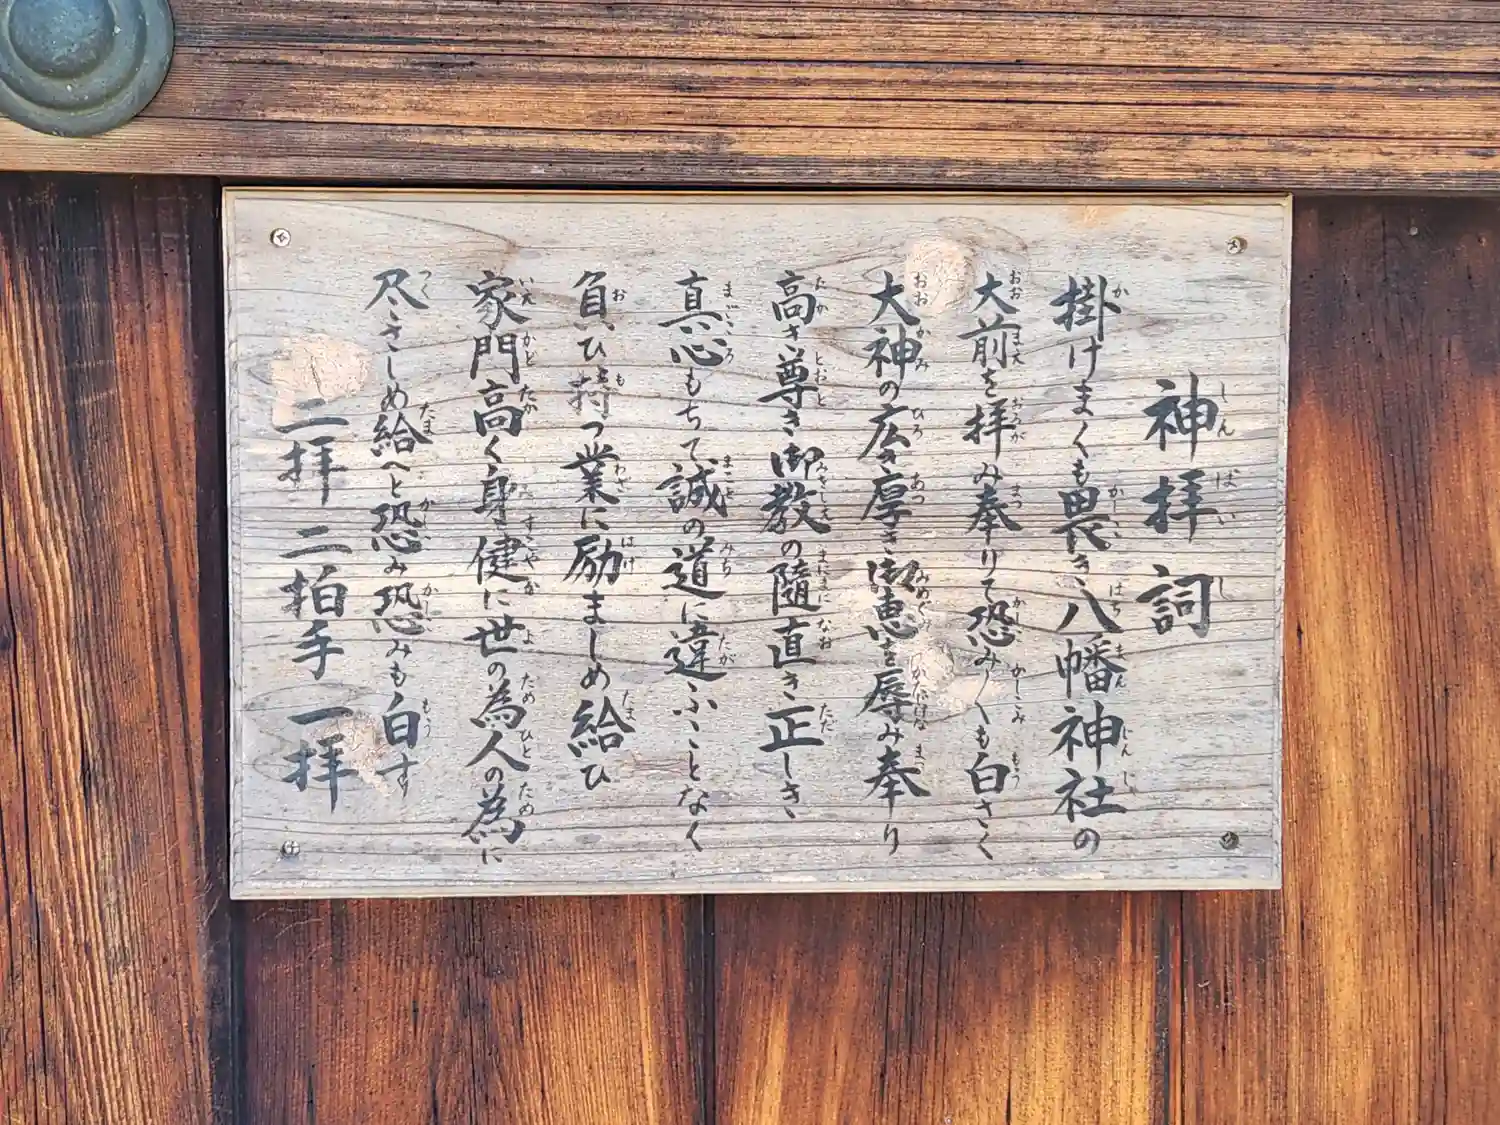 神拝詞
掛けまくも畏き八幡神社の
大前を拝み奉りて恐み〱も白さく
大神の広き厚き御恵を辱み奉り
高き尊き御教の随直き正しき
真心もちて誠の道に違ふことなく
負ひ持つ業に励ましめ給ひ
家門高く身健に世の為人の為に
尽さしめ給へと恐み恐みも白す
二拝 二拍手 一拝